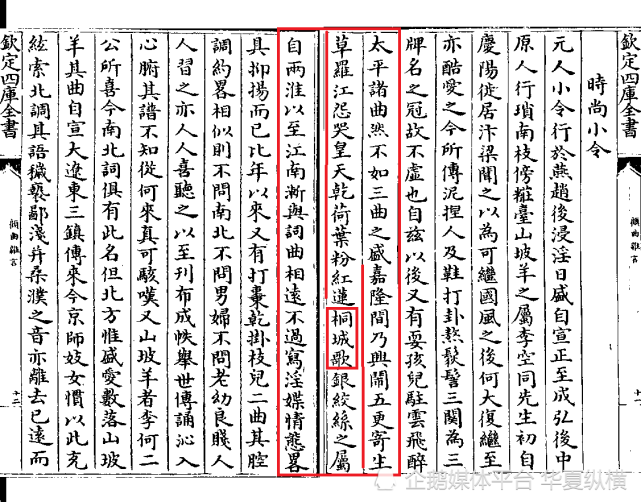 欽定四庫全書
顧曲雜言
十一
時尚小令
元人小令行於燕趙後浸淫日盛自宣正至成弘後中
原人行瑣南枝傍糚臺山坡羊之屬李空同先生初自
慶陽徙居汴梁聞之以為可繼國風之後何大復繼至
亦酷愛之今所傳泥捏人及鞋打卦熬鬏髻三闋為三
牌名之冠故不虛也自茲以後又有耍孩兒駐雲飛醉
太平諸曲然不如三曲之盛嘉隆間乃興鬧五更寄生
草羅江怨哭皇天乾荷葉粉紅蓮桐城歌銀絞絲之屬
自兩淮以至江南漸與詞曲相遠不過寫淫媟情態畧
具抑揚而已比年以來又有打棗乾掛枝兒二曲其腔
調約畧相似則不問南北不問男婦不問老幼良賤人
人習之亦人人喜聽之以至刊布成帙舉世傳誦沁入
心腑其譜不知從何來真可駭嘆又山坡羊者李何二
公所喜今南北詞俱有此名但北方惟盛愛數落山坡
羊其曲自宣大遼東三鎮傳來今京師妓女慣以此充
絃索北調其語穢褻鄙淺并桑濮之音亦離去已遠而
欽定四庫全書
顧曲雜言
十二
企鹅媒体平台 华夏纵横